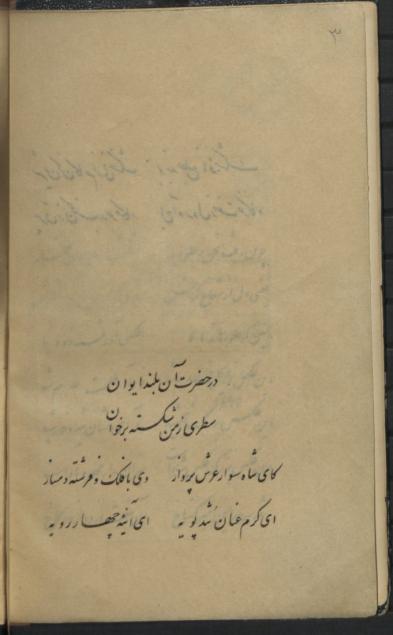 ۳
در حضرت آن بلند ایوان
سطری ز من شکسته برخوان
کای شاه سوار عرش پرواز وی با فلک و فرشته دمساز
ای گرم عنان تند پویه ای آینه چهار رویه